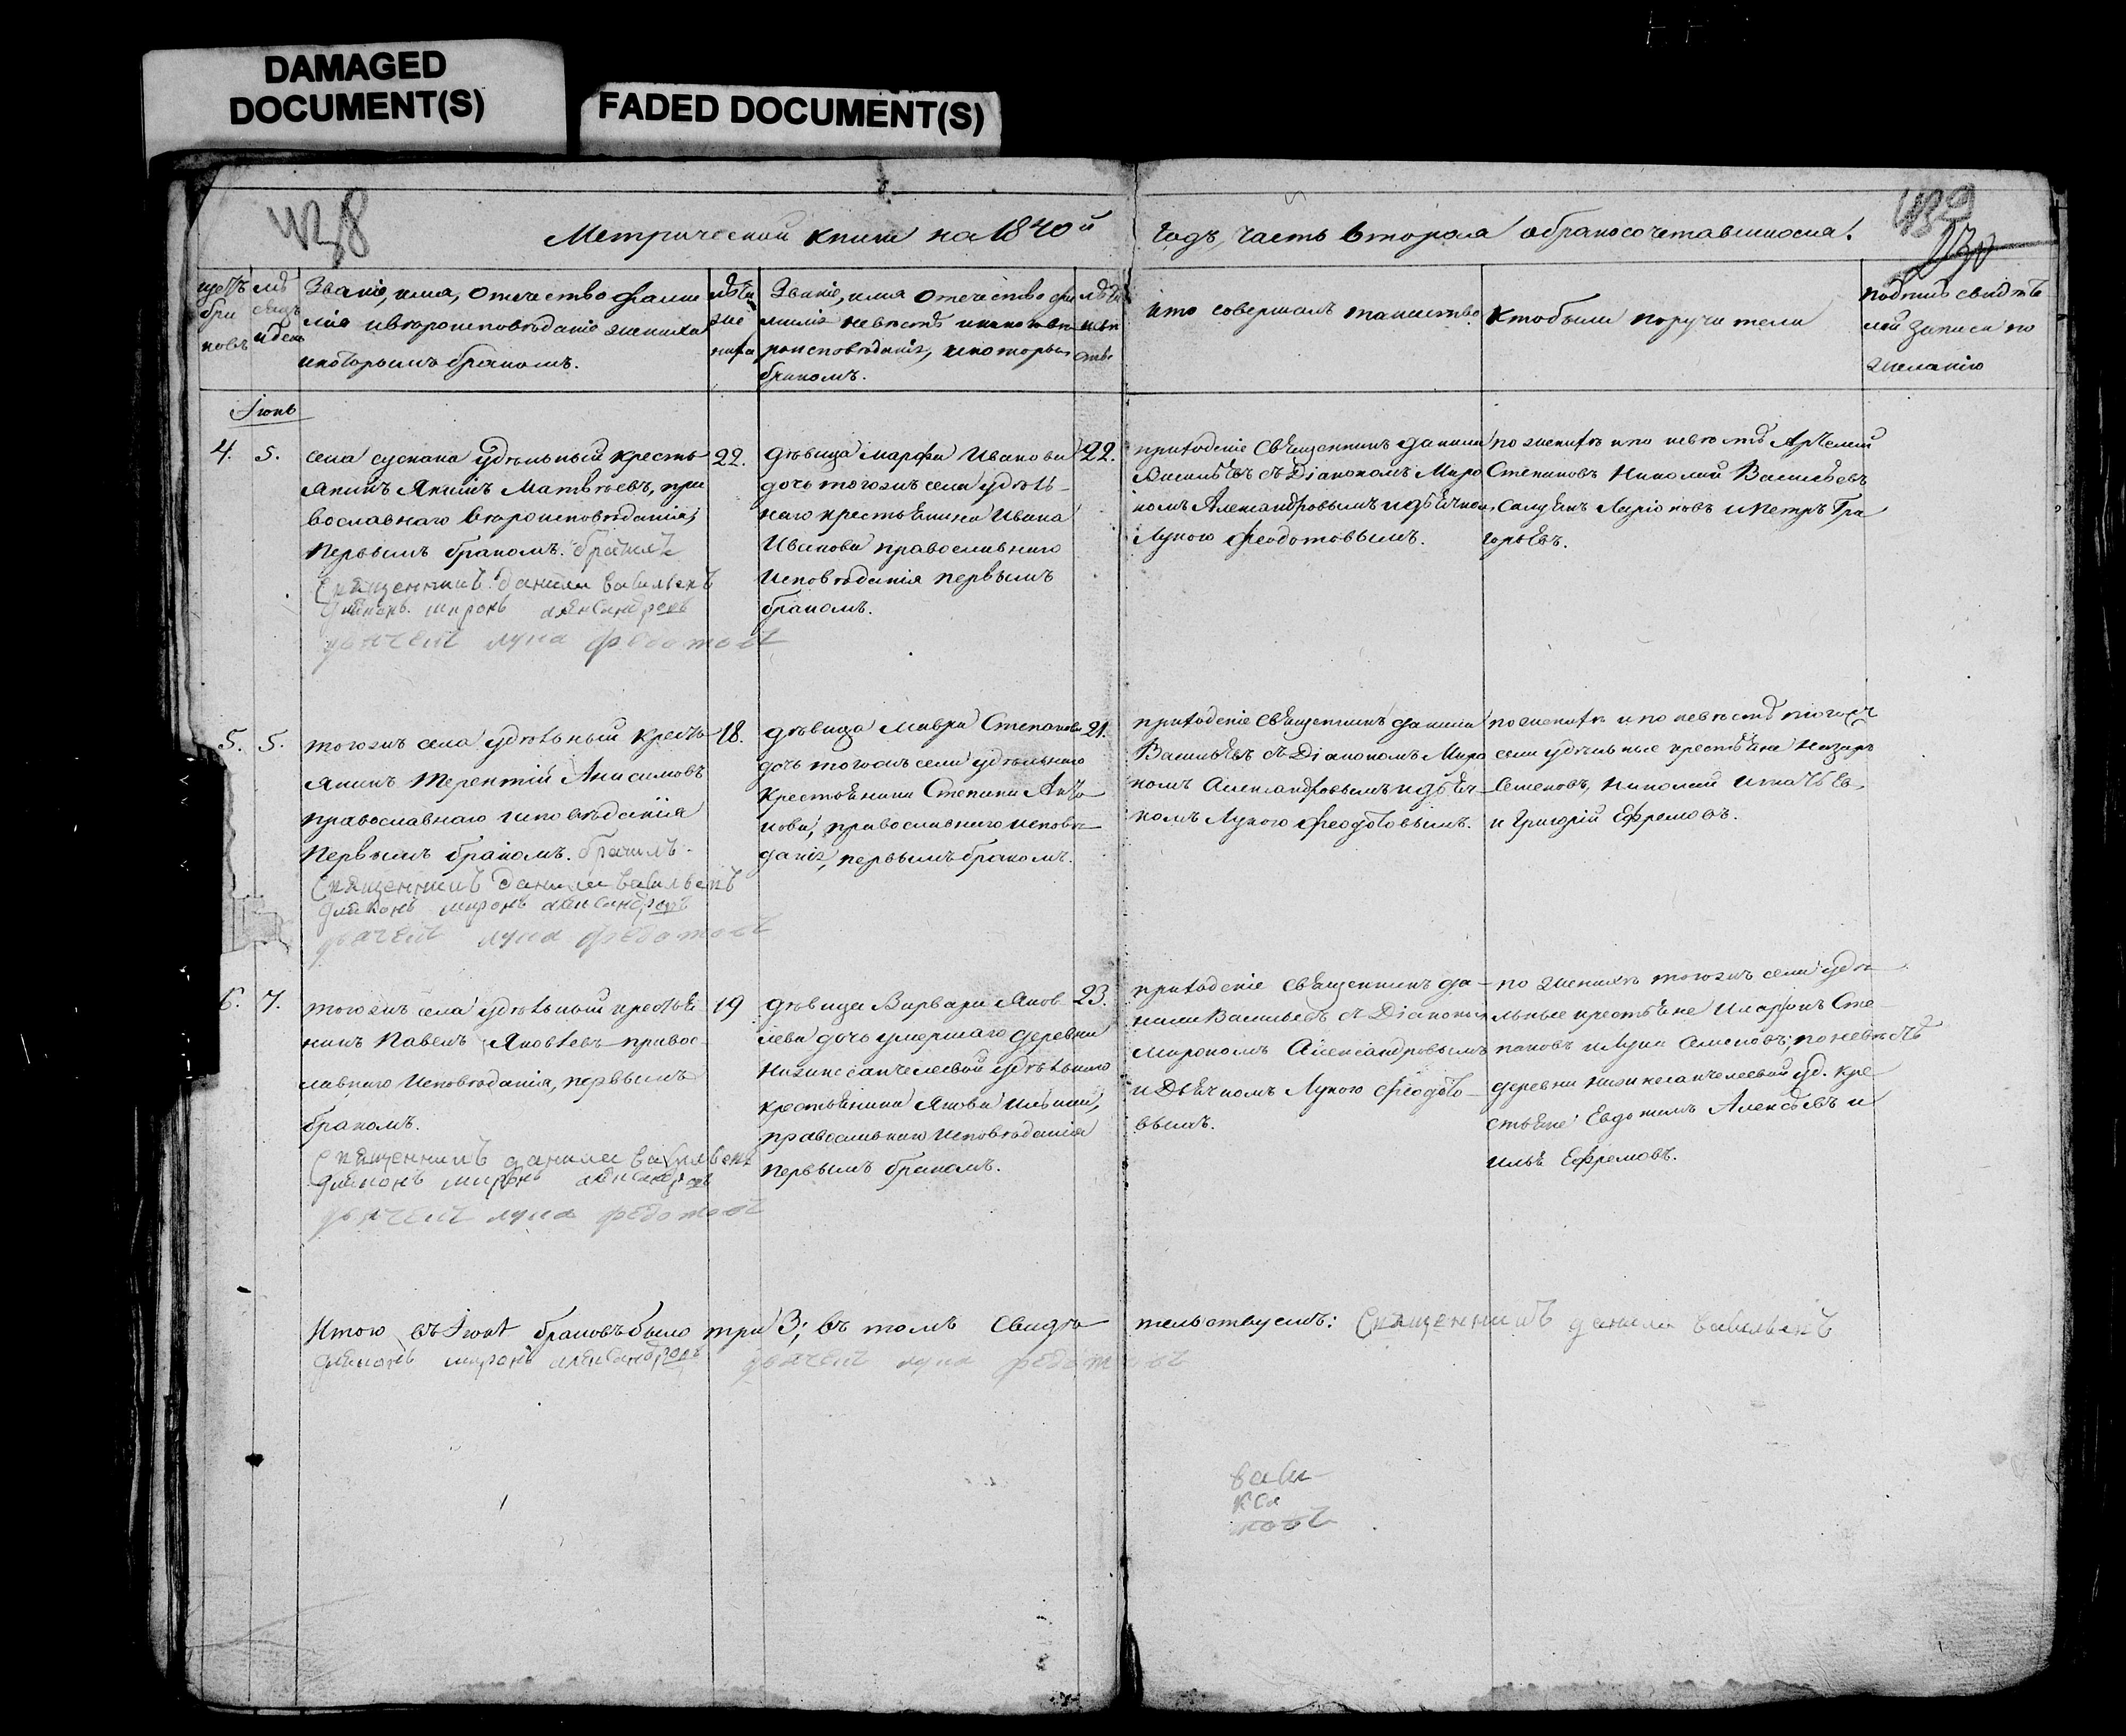 DAMAGED
DOCUMENT(S)
FADED DOCUMENT(S)
438
439
Метрической книги на 1840й годъ, часть вторая о бракосочетавшихся.
щетъ браковъ
мѣсяцъ и день
Званіе, имя, отечество фами
лія и вѣроисповѣданіе жениха
и которымъ бракомъ.
лѣта
же
ниха
Званіе, имя отечество фа
милія невѣстѣ и какого вѣ
роисповѣданія, и которым
бракомъ.
лѣта
невѣ
сты
кто совершалъ таинство
кто были поручители
подпись свидѣте
лей записи по
желанію
Іюнь
4. 5.
села сускана удѣльный кресть
янинъ Якимъ Матвѣевъ, пра
вославнаго вѣроисповѣданія,
первымъ бракомъ. брачилъ
Священникъ данила васильевъ
дияконъ миронъ александровъ
дьячекъ лука федотовъ
22.
дѣвица марфа Иванова
дочь тогожъ села удѣль-
наго крестьянина Ивана
Иванова православнаго
исповѣданія первымъ
бракомъ.
22.
приходскіе священникъ данила
Васильевъ съ Діакономъ Миро
номъ Александровымъ и дьячкомъ
Лукою Феодотовымъ.
по женихѣ и по невѣстѣ Артемий
Степановъ Николай Васильевъ
Самуилъ Ларіоновъ и Петръ Гри
горьевъ.
5. 5.
тогожъ села удѣльный кресть
янинъ Терентій Анисимовъ
православнаго исповѣданія
первымъ бракомъ. брачилъ.
Священникъ данила васильевъ
дияконъ миронъ александровъ
дьячекъ лука федотовъ
18.
дѣвица Мавра Степанова
дочь тогожъ села удѣльнаго
крестьянина Степана Анто
нова, православнаго исповѣ
данія, первымъ бракомъ.
21.
приходскіе священникъ данила
Васильевъ съ Діакономъ Миро
номъ Александровымъ и дьяч-
комъ Лукою Феодотовымъ.
по женихѣ и по невѣстѣ тогожъ
села удѣльные крестьяне Назаръ
Семеновъ, Николай Игнатьев,
и Григорій Ефремовъ.
6. 7.
тогожъ села удѣльный крестья
нинъ Павелъ Яковлевъ правос
лавнаго исповѣданія, первымъ
бракомъ.
Священникъ данила васильевъ
дияконъ миронъ александровъ
дьячекъ лука федотовъ
19
дѣвица Варвара Яков
лева дочь умершаго деревни
нижнесанчелеевой удѣльнаго
крестьянина Якова Ильина,
православнаго исповѣданія
первымъ бракомъ.
23.
приходскіе священникъ да-
нила Васильевъ съ Діакономъ
мирономъ Александровымъ
и Дьячкомъ Лукою Феодото-
вымъ.
по женихѣ тогожъ села удѣ
льные крестьяне Иларіонъ Сте
пановъ и Лука Симоновъ; по невѣстѣ
деревни нижнесанчелеевой уд. кре
стьяне Евдокимъ Алексѣевъ и
илья Ефремовъ.
Итого въ Іюнѣ браковъ было три 3; въ томъ свидѣтельствуемъ: Священникъ данила васильевъ
дияконъ миронъ александровъ дьячекъ лука федотовъ